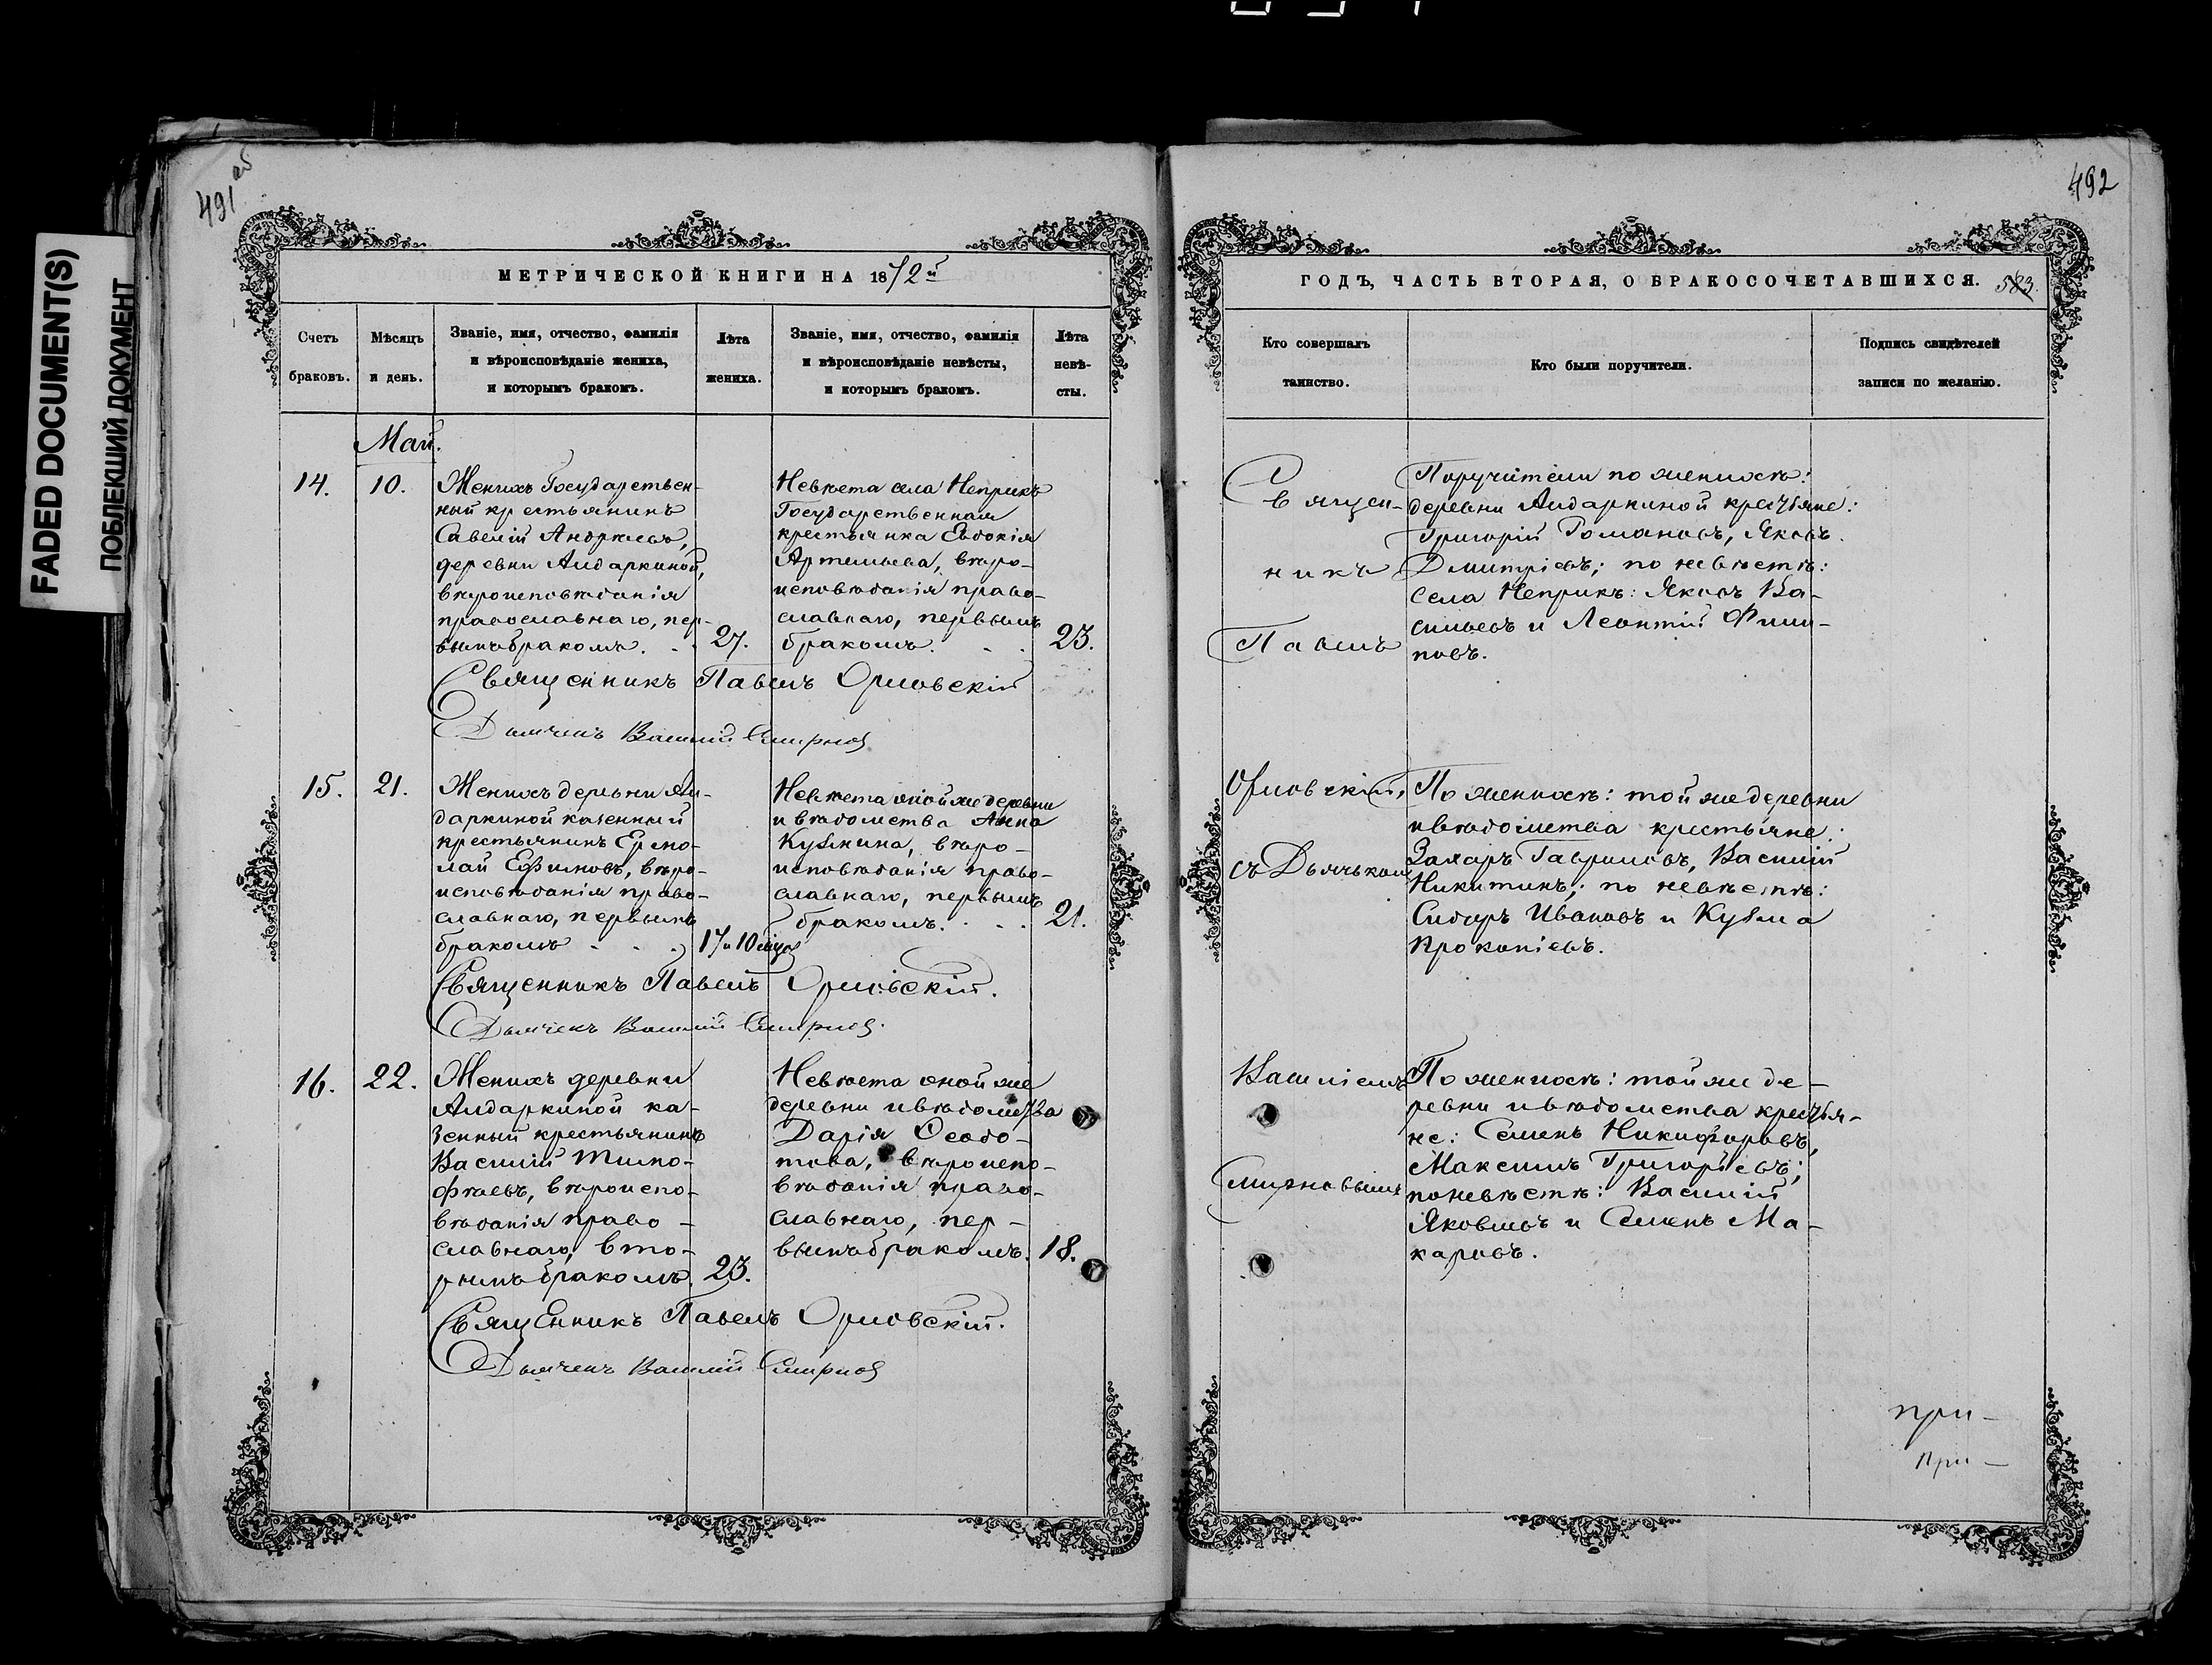 FADED DOCUMENT(S)
ПОБЛЕКШИЙ ДОКУМЕНТ
491 об
492
МЕТРИЧЕСКОЙ КНИГИ НА 1872й
Счетъ браковъ.
Мѣсяцъ и день.
Званіе, имя, отчество, фамилія
и вѣроисповѣданіе жениха,
и которымъ бракомъ.
Лѣта жениха.
Званіе, имя, отчество, фамилія
и вѣроисповѣданіе невѣсты,
и которымъ бракомъ.
Лѣта невѣ-
сты.
Май.
14.
10.
Женихъ Государствен-
ный крестьянинъ
Савелій Андреевъ,
деревни Алдаркиной,
вѣроисповѣданія
православнаго, пер-
вымъ бракомъ.
27.
Невѣста села Неприкъ
Государственная
крестьянка Евдокія
Артемьева, вѣро-
исповѣданія право-
славнаго, первымъ
бракомъ.
23.
Священникъ Павелъ Орловскій
Дьячекъ Василій Смирнов
15.
21.
Женихъ деревни Ал-
даркиной казенный
крестьянинъ Ермо-
лай Ефимовъ, вѣро-
исповѣданія право-
славнаго, первымъ
бракомъ
17 и 10 мѣсяц
Невѣста оной же деревни
и вѣдомства Анна
Кузмина, вѣро-
исповѣданія право-
славнаго, первымъ
бракомъ.
21.
Священникъ Павелъ Орловскій.
Дьячекъ Василій Смирнов.
16.
22.
Женихъ деревни
Алдаркиной ка-
зенный крестьянинъ
Василій Тимо-
фѣевъ, вѣроиспо-
вѣданія право-
славнаго, вто-
рымъ бракомъ.
23.
Невѣста оной же
деревни и вѣдомства
Дарія Ѳеодо-
това, вѣроиспо-
вѣданія право-
славнаго, пер-
вымъ бракомъ.
18.
Священникъ Павелъ Орловскій.
Дьячекъ Василій Смирнов
ГОДЪ, ЧАСТЬ ВТОРАЯ, О БРАКОСОЧЕТАВШИХСЯ. 583.
Кто совершалъ
таинство.
Кто были поручители.
Подпись свидѣтелей
записи по желанію.
Священ-
никъ
Павелъ
Орловскій,
съ Дьячькомъ
Василіемъ
Смирновымъ
Поручители по женихѣ:
деревни Алдаркиной крестьяне:
Григорій Романовъ, Яковъ
Дмитріевъ; по невѣстѣ:
села Неприкъ: Яковъ Ва-
сильевъ и Леонтій Филип-
повъ.
По женихѣ: той же деревни
и вѣдомства крестьяне:
Захаръ Гавриловъ, Василій
Никитинъ; по невѣстѣ:
Сидоръ Ивановъ и Кузма
Прокопіевъ.
По женихѣ: той же де-
ревни и вѣдомства крестья-
не: Семенъ Никифоровъ,
Максимъ Григорьевъ;
по невѣстѣ: Василій
Яковлевъ и Семенъ Ма-
каровъ.
при-
при-